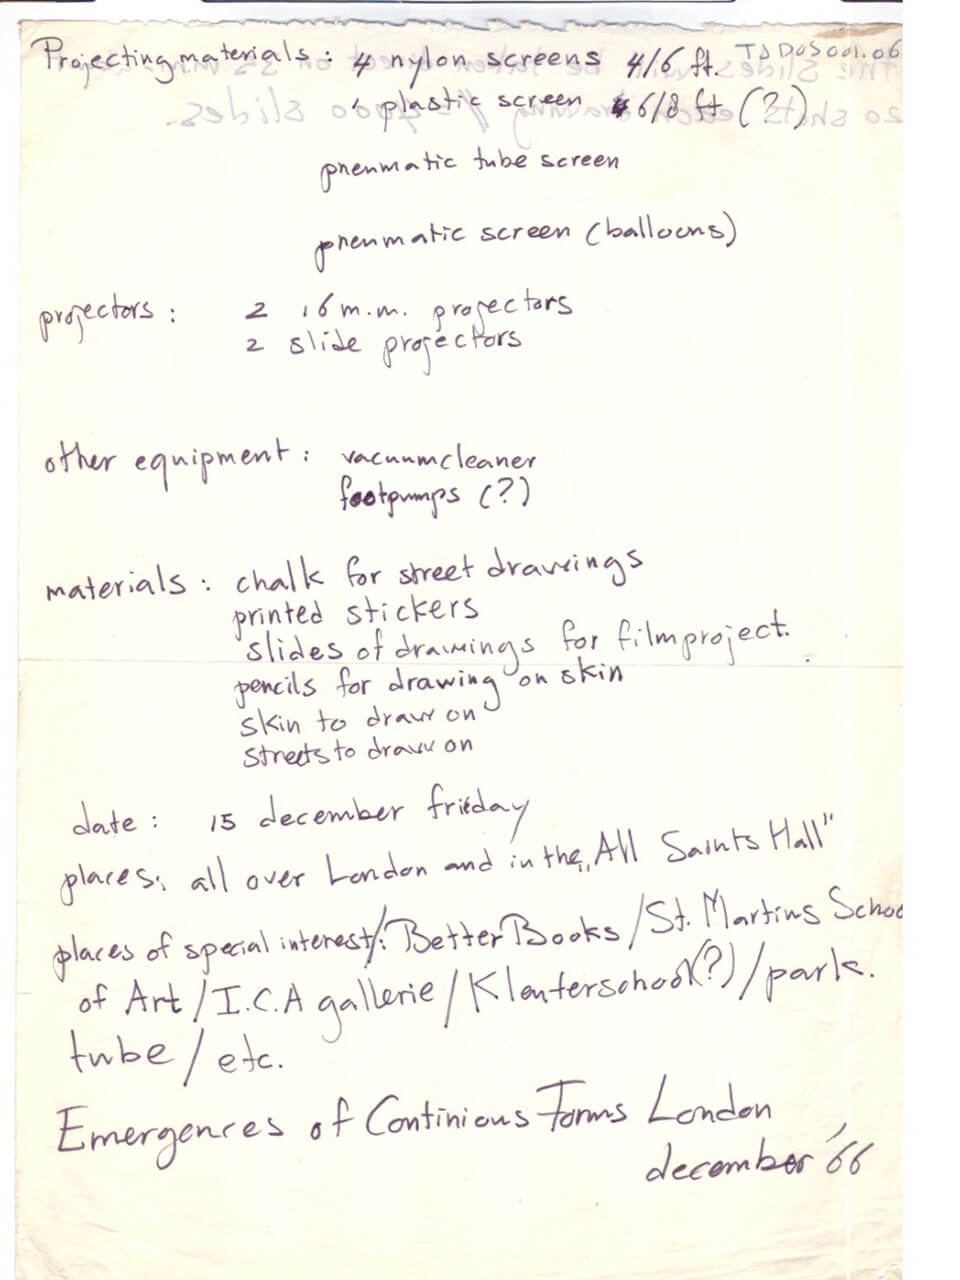 Projecting materials: 4 nylon screens 4/6 ft. TJDOS001.06
1 plastic screen 6/8 ft (?)
pnenmatic tube screen
pnenmatic screen (balloons)
projectors: 2 16 m.m. projectors
2 slide projectors
other equipment: vacuumcleaner
footpumps (?)
materials: chalk for street drawings
printed stickers
slides of drawings for filmproject.
pencils for drawing on skin
skin to draw on
streets to draw on
date: 15 december friday
places: all over London and in the „All Saints Hall"
places of special interest/: Better Books/St. Martins Schoo
of Art/I.C.A gallerie/Kleuterschool(?)/park.
tube/etc.
Emergences of Continious Forms London
december '66